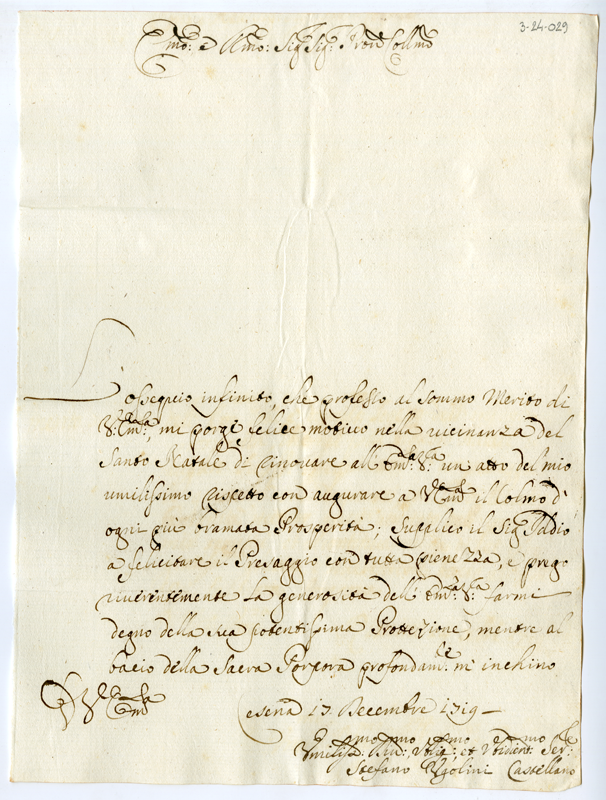 3-24-029
Emo: e Rmo: Sig Sig: Pron Collmo
L'ossequio infinito, che professo al sommo Merito di
V: Emza, mi porge felice motivo nella vicinanza del
Santo Natale di rinovare all' Emza: Va: un atto del mio
umilissimo rispetto con augurare a V: Emza il Colmo d'
ogni più bramata Prosperità; Supplico il Sig Iddio
a felicitare il Presaggio con tutta pienezza, e prego
riverentemente la generosità dell' Emza: Va: farmi
degno della sua potentissima Protezione, mentre al
bacio della Sacra Porpora profondamte: m'inchino
D V: Emza
Cesena 17. Decembre 1719
Umiliss.mo Dmo: Oblig:mo et Obident:mo Serre:
Stefano Ugolini Castellano